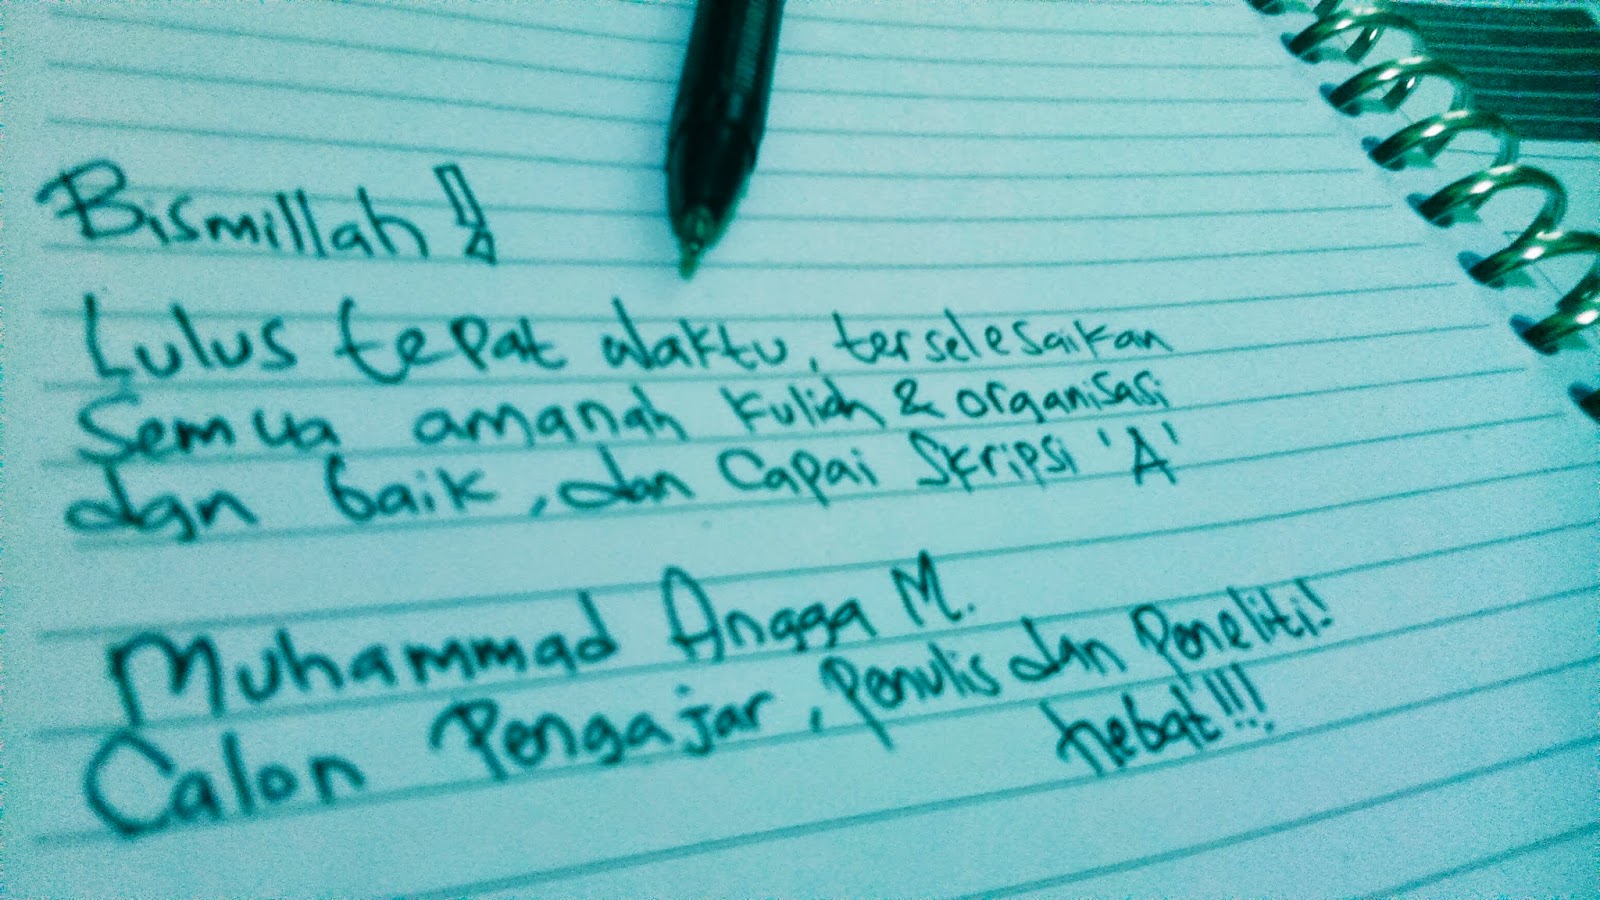 Bismillah!
Lulus tepat waktu, terselesaikan
Semua amanah kuliah & organisasi
dgn baik, dan Capai Skripsi 'A'
Muhammad Angga M.
Calon Pengajar, Penulis dan Peneliti!
hebat!!!